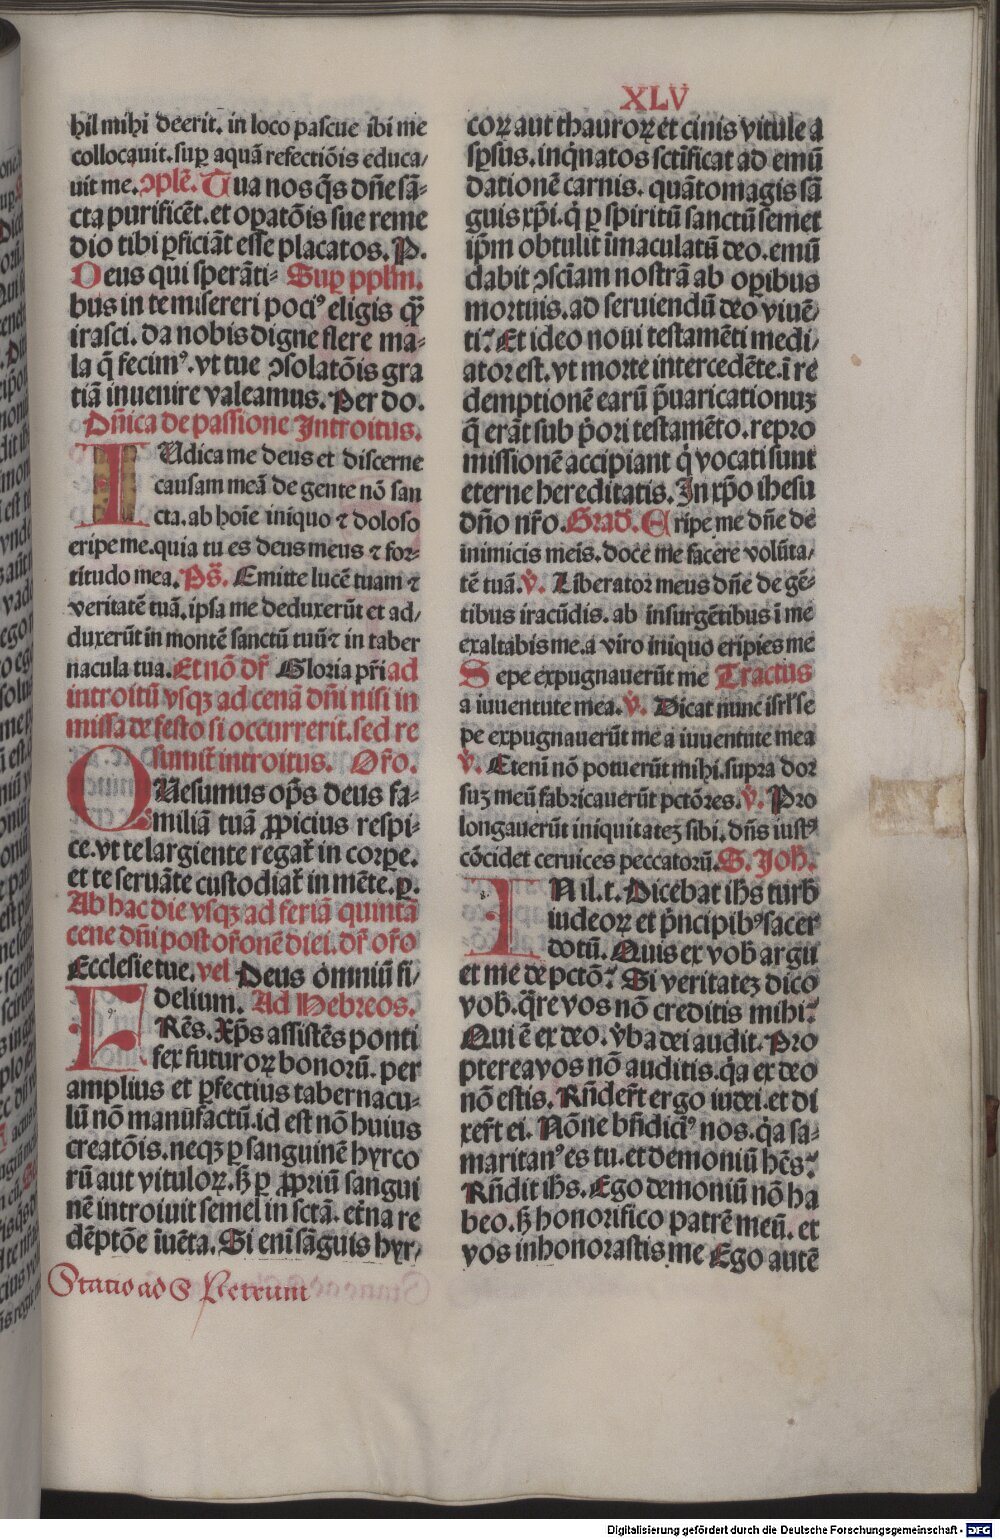 XLV
hil mihi deerit. in loco pascue ibi me
collocauit. suꝑ aquā refectiōis educa/
uit me. ↄplē. Tua nos q̄s dn̄e sā-
cta purificēt. et oꝑatōis sue reme
dio tibi ꝑficiāt esse placatos. P.
Deus qui sperāti- Suꝑ pplm̄.
bus in te misereri pociꝰ eligis qꝫ̄
irasci. da nobis digne flere ma-
la q̄ fecimꝰ. vt tue ↄsolatōis gra
tiā inuenire valeamus. Per do.
Dn̄ica de passione Introitus.
IUdica me deus et discerne
causam meā de gente nō san
cta. ab hoīe iniquo ⁊ doloso
eripe me. quia tu es deus meus ⁊ for-
titudo mea. Ps̄. Emitte lucē tuam ⁊
veritatē tuā. ipsa me deduxerūt et ad/
duxerūt in montē sanctū tuū ⁊ in taber
nacula tua. Et nō dr̄ Gloria pr̄i ad
introitū vsqꝫ ad cenā dn̄i nisi in
missa de festo si occurrerit. sed re
sumit̄ introitus. Or̄o.
QUesumus op̄s deus fa-
miliā tuā ꝓpicius respi-
ce. vt te largiente regat̄ in corpe.
et te seruāte custodiat̄ in mēte. ꝑ.
Ab hac die vsqꝫ ad feriā quintā
cene dn̄i post or̄onē diei. dr̄ or̄o
Ecclesie tue. vel Deus omniū fi/
delium. Ad Hebreos.
FRēs. Xp̄s assistēs ponti
fex futuroꝝ bonorū. per
amplius et ꝑfectius tabernacu-
lū nō manufactū. id est nō huius
creatōis. neqꝫ ꝑ sanguinē hyrco
rū aut vituloꝝ. sꝫ ꝑ ꝓpriū sangui
nē introiuit semel in sctā. et̄na re
dēptōe īuēta. Si enī sāguis hyr/
Statio ad S Petrum
coꝝ aut thauroꝝ et cinis vitule a
spsus. inq̄natos sctīficat ad emū
dationē carnis. quātomagis sā
guis xp̄i. q̇ ꝑ spiritū sanctū semet
ip̄m obtulit īmaculatū deo. emū
dabit ↄsciam nostrā ab oꝑibus
mortuis. ad seruiendū deo viuē/
ti? Et ideo noui testamēti medi/
ator est. vt morte intercedēte. ī re
demptionē earū p̄uaricationuꝫ
q̄ erāt sub p̄ori testamēto. repro
missionē accipiant q̇ vocati sunt
eterne hereditatis. In xp̄o ihesu
dn̄o nr̄o. Grad. Eripe me dn̄e de
inimicis meis. doce me facere volūta/
tē tuā. v̇. Liberator meus dn̄e de gē-
tibus iracūdis. ab insurgētibus ī me
exaltabis me. a viro iniquo eripies me
Sepe expugnauerūt me Tractus
a iuuentute mea. v̇. Dicat nunc isrl̄ se
pe expugnauerūt me a iuuentute mea
v̇. Etenī nō potuerūt mihi. supra dor
suꝫ meū fabricauerūt pctōres. v̇. Pro
longauerūt iniquitateꝫ sibi. dn̄s iustꝰ
cōcidet ceruices peccatorū. S. Joh̄.
IN il. t. Dicebat ih̄s turb̄
iudeoꝝ et p̄ncipibꝰ sacer
dotū. Quis ex vob̄ argu
et me de pctō? Si veritateꝫ dico
vob̄. q̄re vos nō creditis mihi?
Qui ē ex deo. v̄ba dei audit. Pro
pterea vos nō auditis. q̄a ex deo
nō estis. Rn̄dert̄ ergo iudei. et di
xert̄ ei. Nōne bn̄diciꝰ nos. q̄a sa-
maritanꝰ es tu. et demoniū hēs?
Rn̄dit ih̄s. Ego demoniū nō ha
beo. sꝫ honorifico patrē meū. et
vos inhonorastis me Ego autē
Digitalisierung gefördert durch die Deutsche Forschungsgemeinschaft - DFG